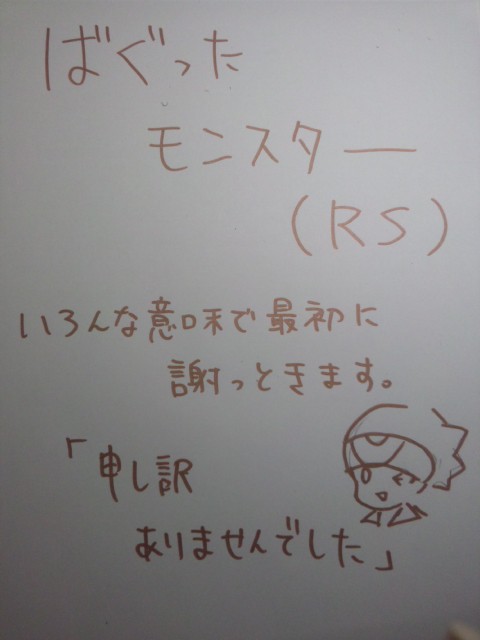 ばぐった
モンスター
(RS)
いろんな意味で最初に
謝っときます。
「申し訳
ありませんでした」